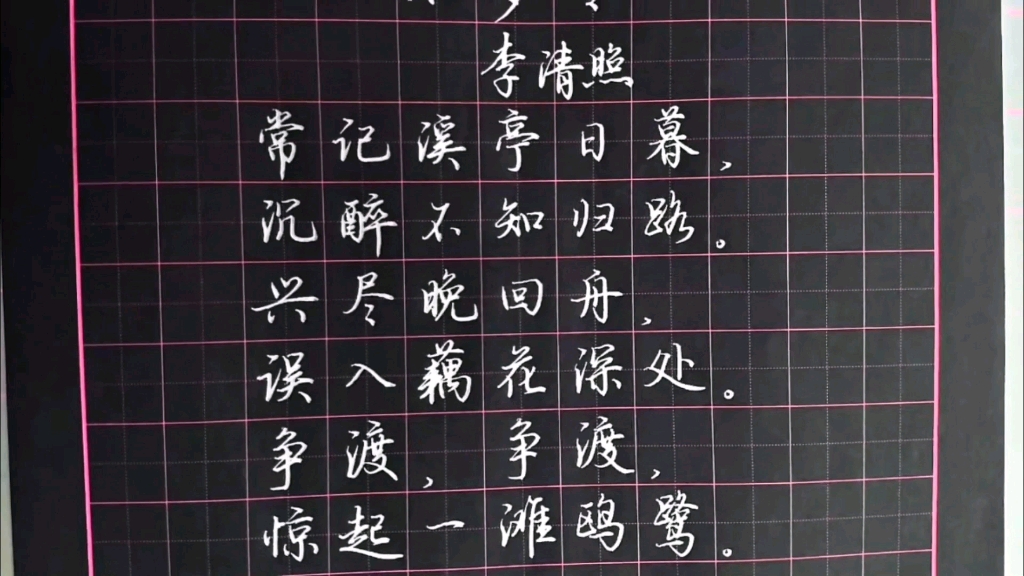 李清照
常记溪亭日暮，
沉醉不知归路。
兴尽晚回舟，
误入藕花深处。
争渡，争渡，
惊起一滩鸥鹭。